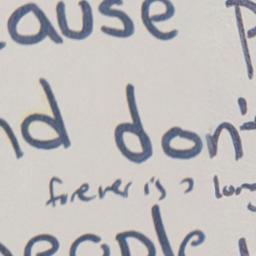 ause
nd don't
forever is a long
people